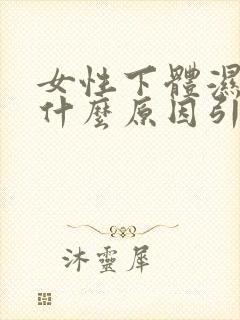 女性下體濕
什麼原因引
沐靈犀